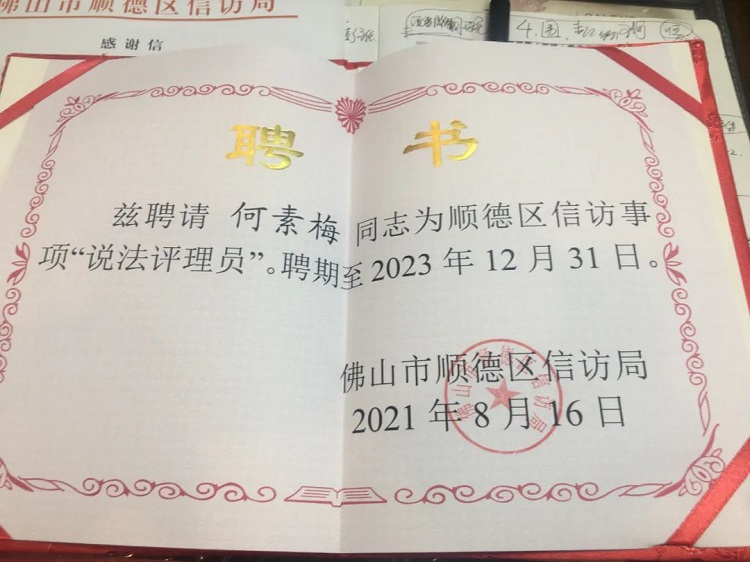 佛山市顺德区信访局
感谢信
聘书
兹聘请 何素梅 同志为顺德区信访事
项“说法评理员”。聘期至2023年12月31日。
佛山市顺德区信访局
2021年8月16日